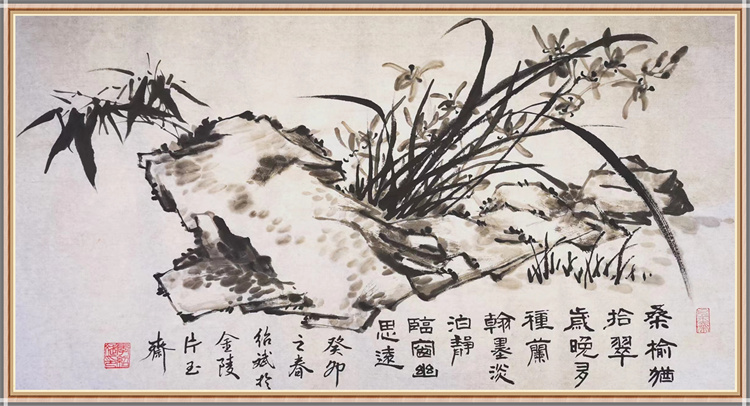 桑榆猶
拾翠
歲晚多
種蘭
翰墨淡
泊靜
臨窗幽
思遠
癸卯
之春
紹斌於
金陵
片玉
齋